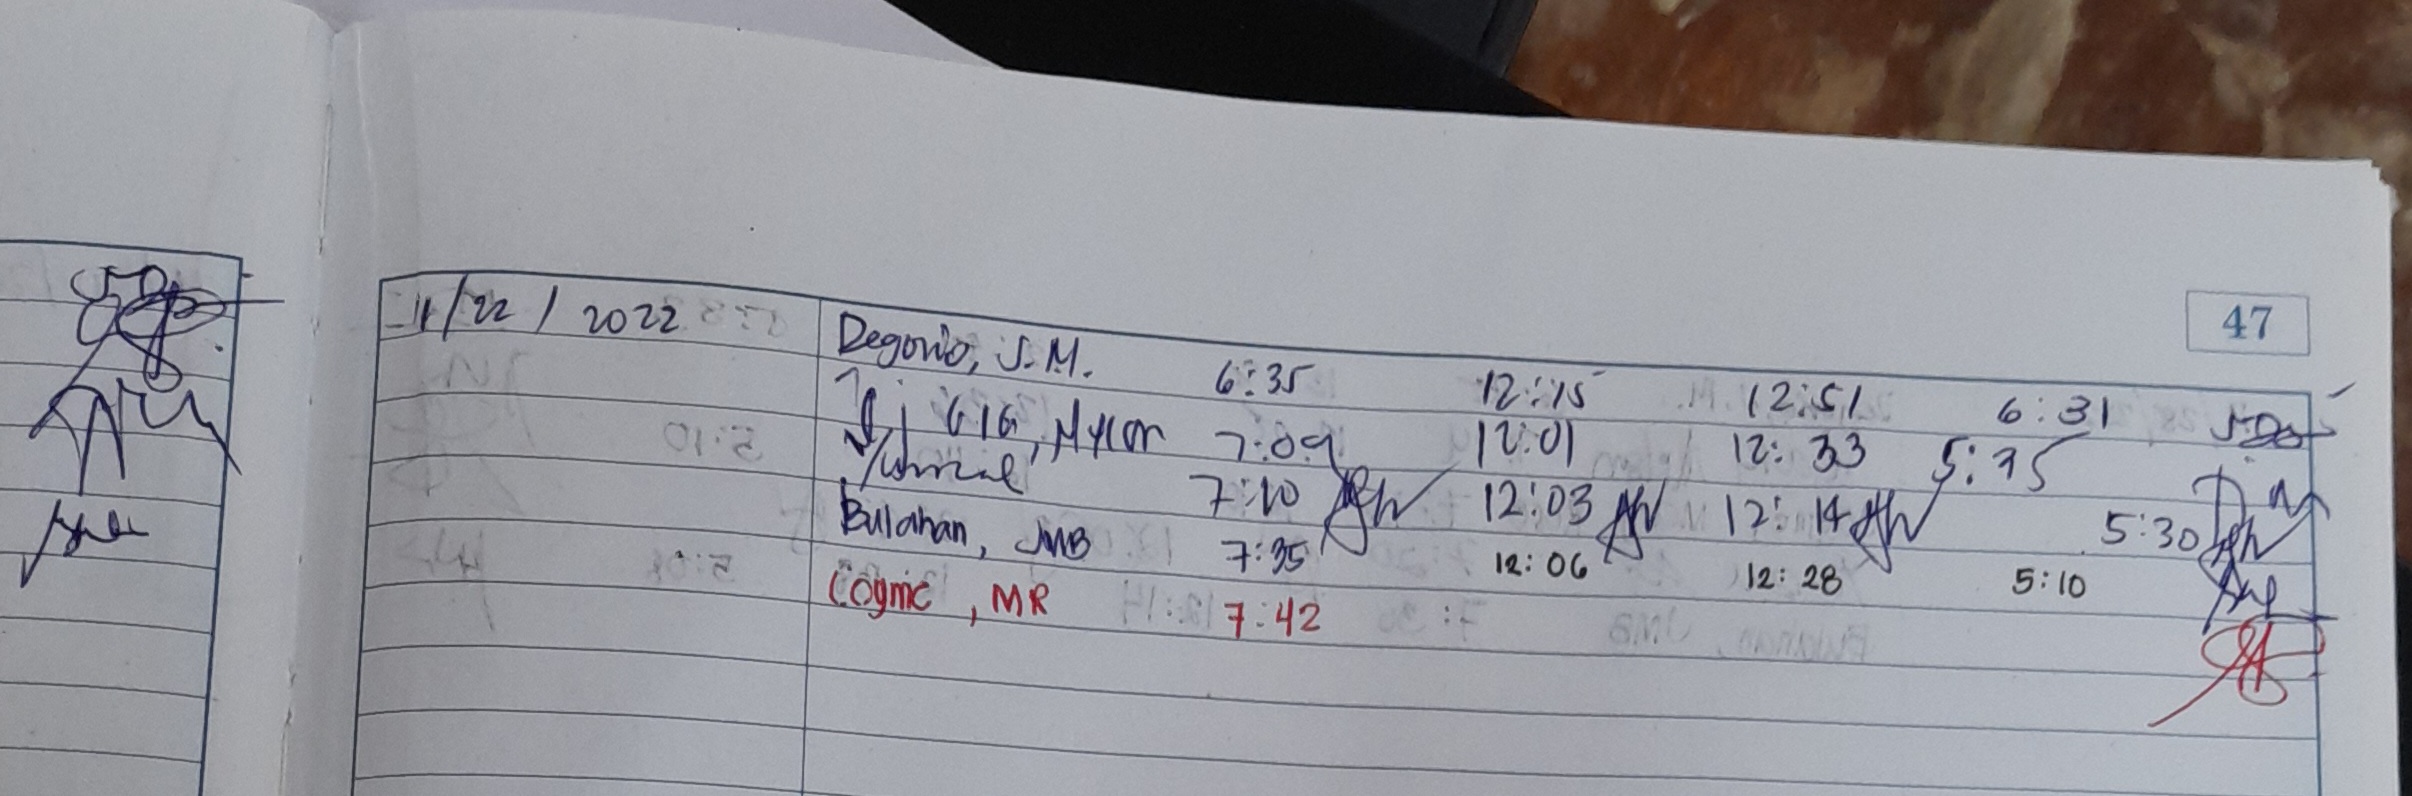 47
11/22/2022 Degorio, J.M. 6:35 12:15 12:51 6:31
Mylon 7:09 12:01 12:33
7:10 12:03 12:14 5:30
Bulahan, JMB 7:35 12:06 12:28 5:10
MR 7:42